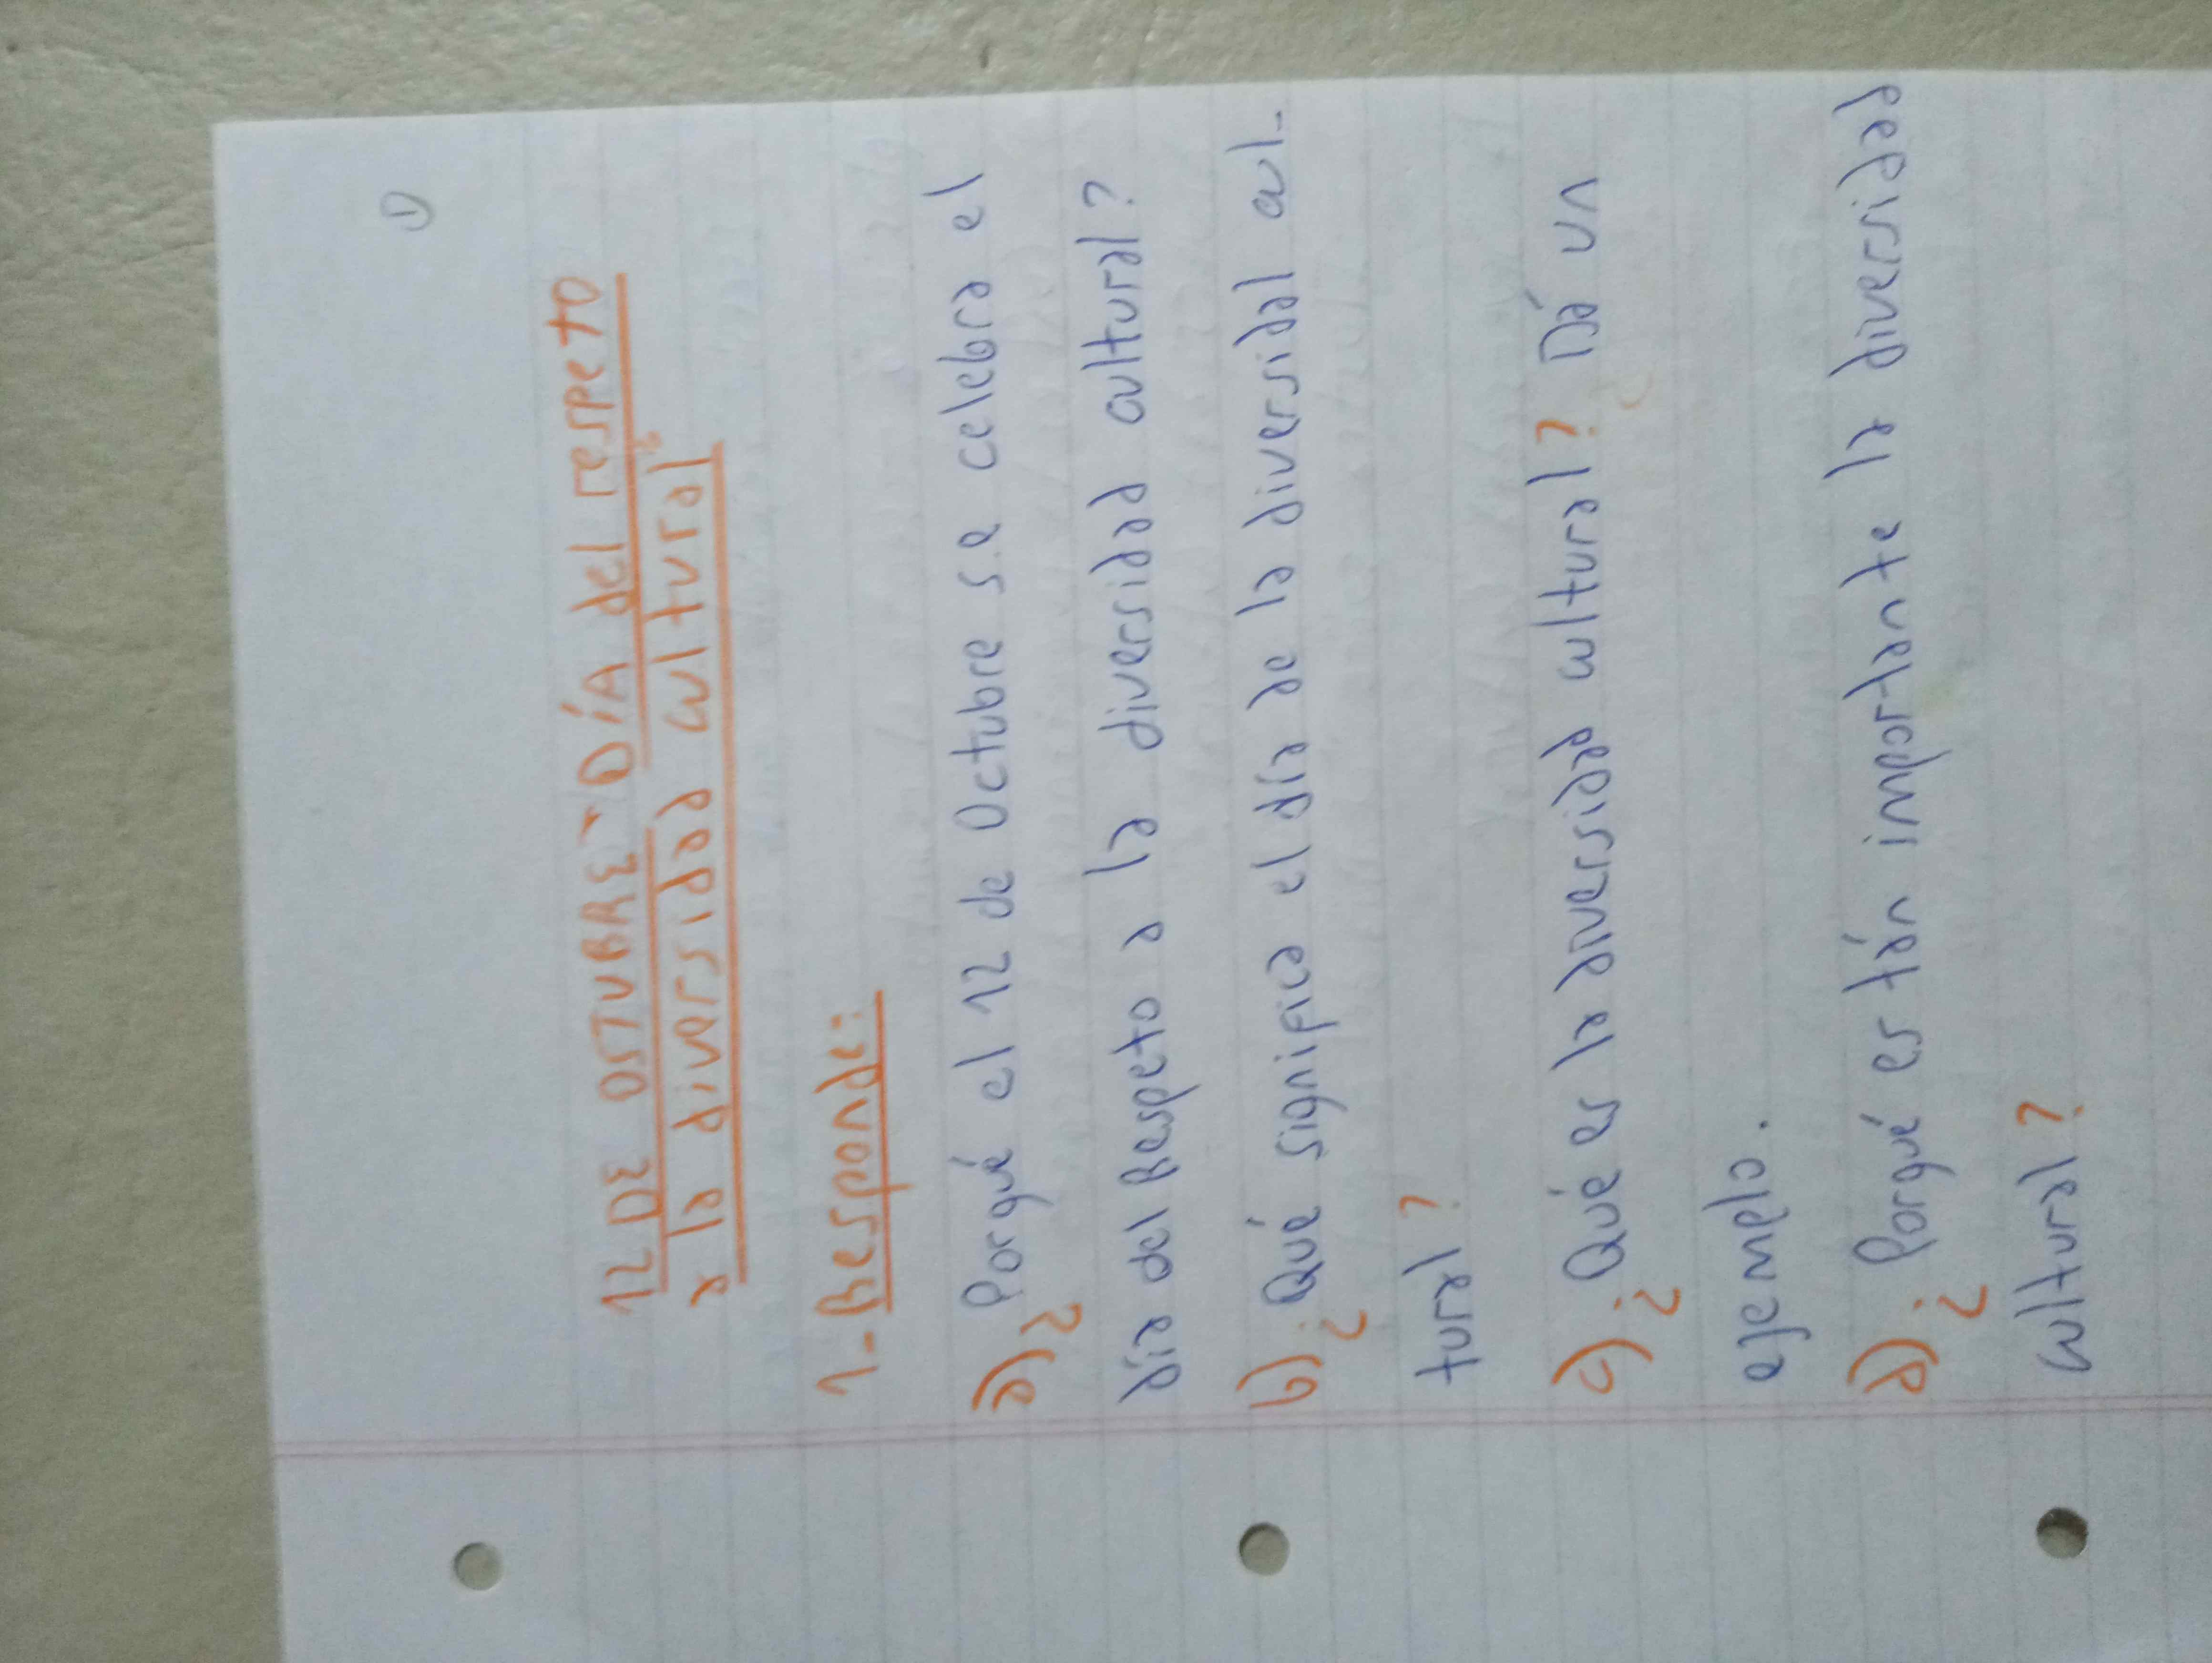 1
12 DE OSTUBRE - DÍA del respeto
a la diversidad cultural
1- Responde:
a) ¿Porqué el 12 de Octubre se celebra el
día del Respeto a la diversidad cultural?
b) ¿Qué significa el día de la diversidal cul-
tural?
c) ¿Qué es la diversidad cultural? Dá un
ejemplo.
d) ¿Porqué es tán importante la diversidad
cultural?